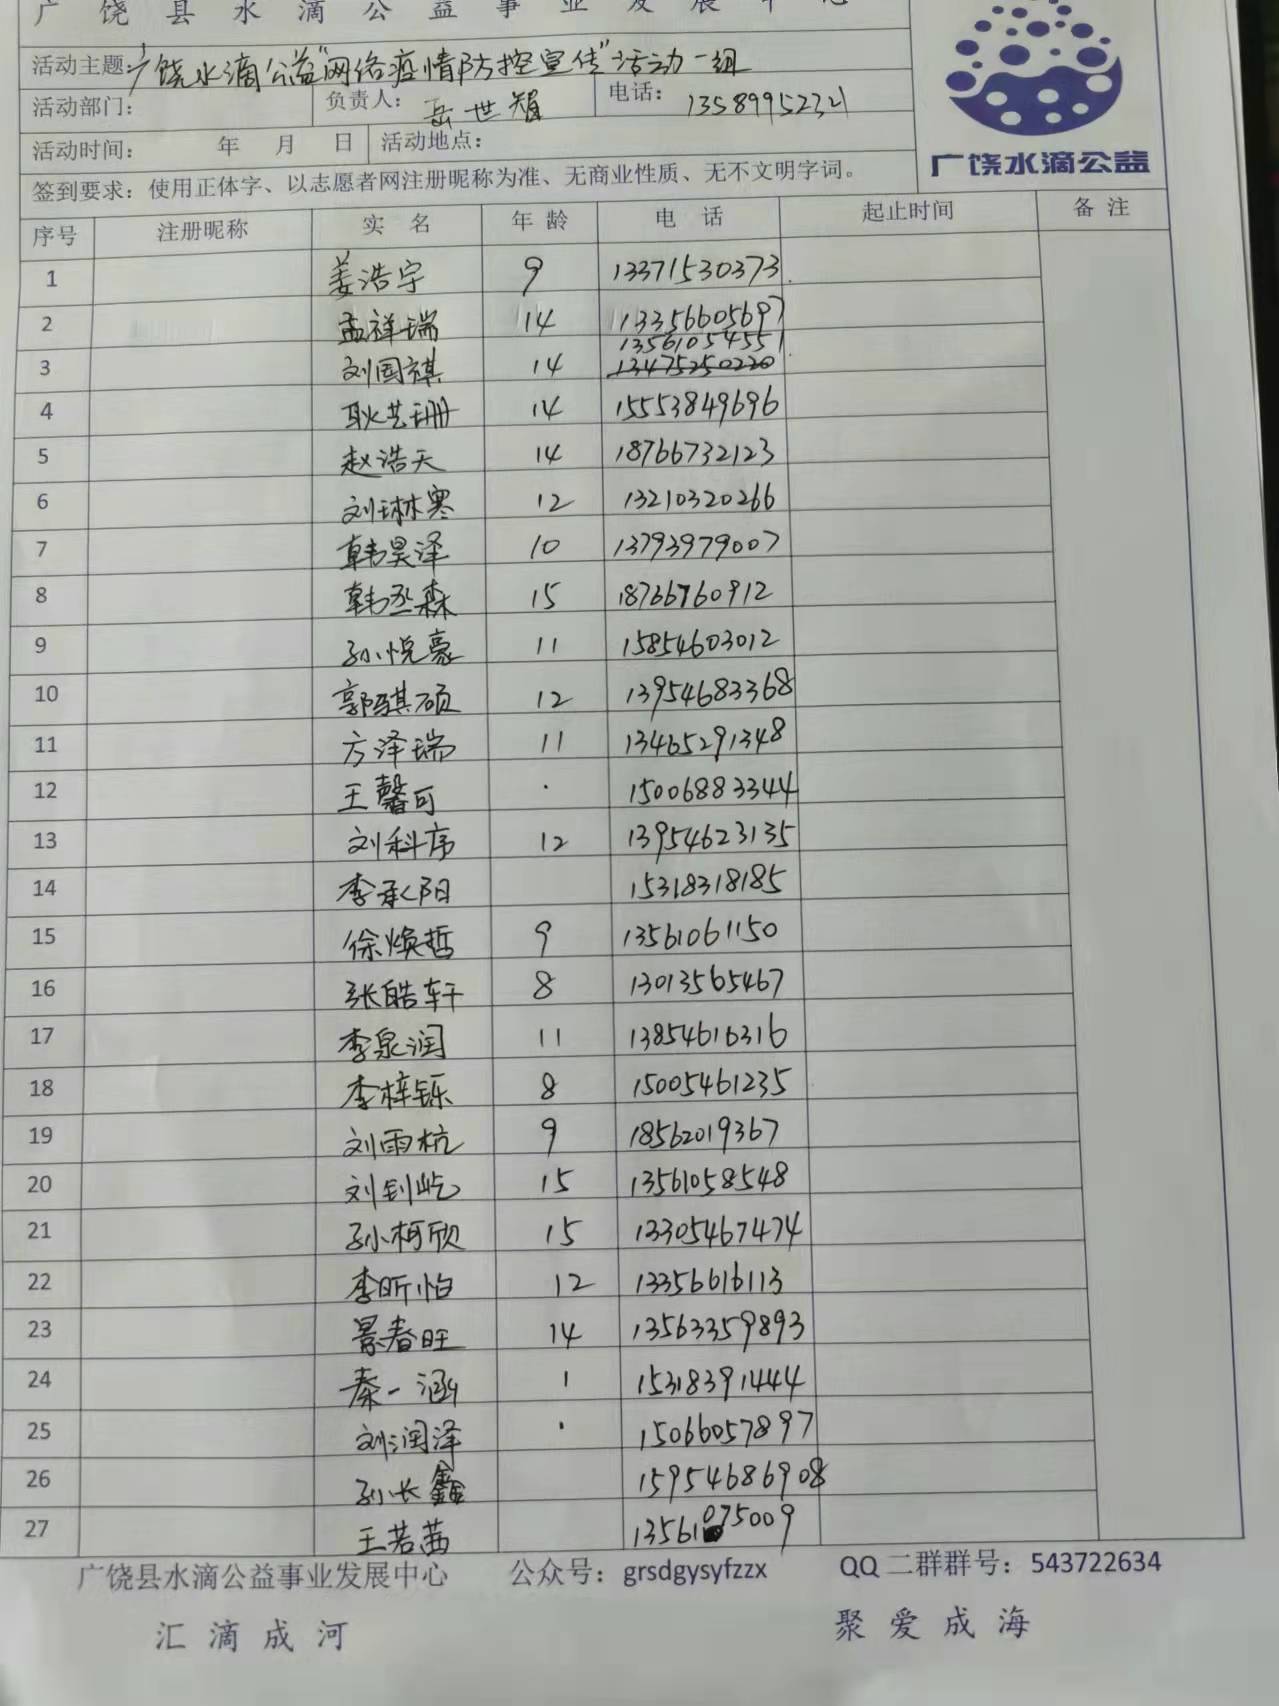 广饶县水滴公益事业发展中心
活动主题: 广饶水滴公益"网络疫情防控宣传"活动一组
活动部门: 负责人: 岳世智 电话: 13589952321
活动时间: 年 月 日 活动地点:
广饶水滴公益
签到要求: 使用正体字、以志愿者网注册昵称为准、无商业性质、无不文明字词。
序号 注册昵称 实 名 年 龄 电 话 起止时间 备 注
1 姜浩宇 9 13371530373
2 孟祥瑞 14 13356605697
13561054551
3 刘国祺 14 13475250220
4 耿艺珊 14 15553849696
5 赵浩天 14 18766732123
6 刘琳寒 12 13210320266
7 韩昊泽 10 13793979007
8 韩丞森 15 18766760912
9 孙悦豪 11 15854603012
10 郭骐硕 12 13954683368
11 方泽瑞 11 13465291348
12 王馨可 · 15006883344
13 刘科序 12 13954623135
14 李承阳 15318318185
15 徐焕哲 9 13561061150
16 张皓轩 8 13013565467
17 李泉润 11 13854616316
18 李梓铄 8 15005461235
19 刘雨杭 9 18562019367
20 刘钊屹 15 13561058548
21 孙柯欣 15 13305467474
22 李昕怡 12 13356616113
23 景春旺 14 13563359893
24 秦一涵 1 15318391444
25 刘润泽 · 15066057897
26 孙长鑫 15954686908
27 王若茜 13561075009
广饶县水滴公益事业发展中心 公众号: grsdgysyfzzx QQ 二群群号: 543722634
汇滴成河 聚爱成海